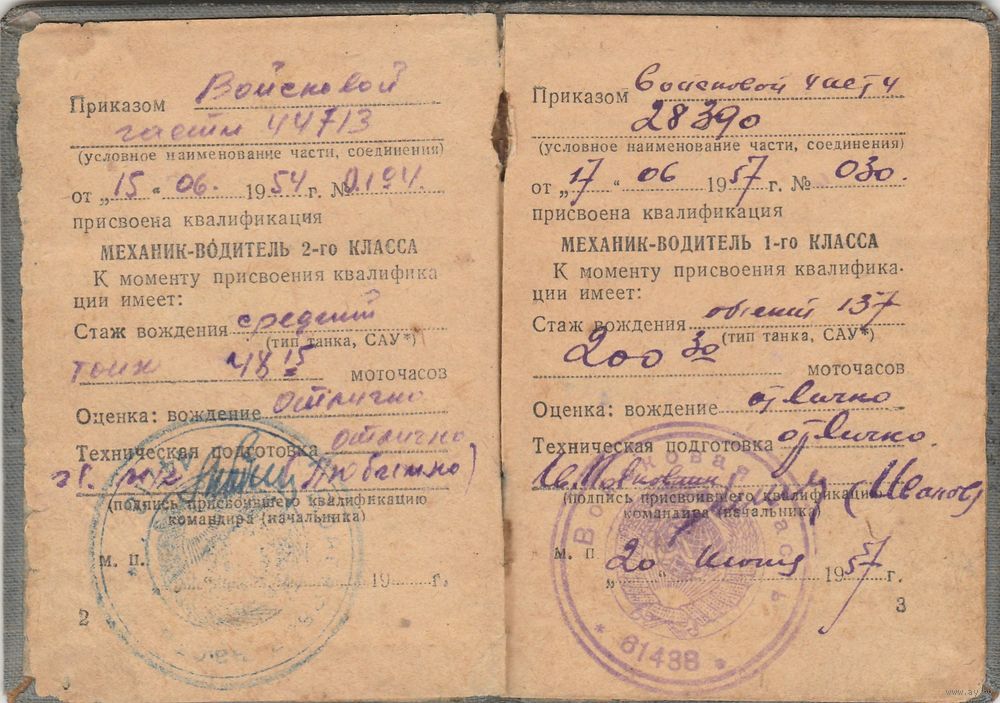 Приказом Войсковой
части 44713
(условное наименование части, соединения)
от „15“ 06. 1954 г. № 0194.
присвоена квалификация
МЕХАНИК-ВОДИТЕЛЬ 2-го КЛАССА
К моменту присвоения квалифика
ции имеет:
Стаж вождения средний
(тип танка, САУ*)
танк 48 15 моточасов
Оценка: вождение отлично
Техническая подготовка отлично
(подпись присвоившего квалификацию
командира (начальника)
М. П. 19 г.
2
Приказом войсковой части
28390
(условное наименование части, соединения)
от „17“ 06 1957 г. № 030.
присвоена квалификация
МЕХАНИК-ВОДИТЕЛЬ 1-го КЛАССА
К моменту присвоения квалифика-
ции имеет:
Стаж вождения общий 137
(тип танка, САУ*)
200 30 моточасов
Оценка: вождение отлично
Техническая подготовка отлично.
(Иванов)
(подпись присвоившего квалификацию
командира (начальника)
М. П.
„20“ июня 1957 г.
3
Войсковая часть
* 61438 *